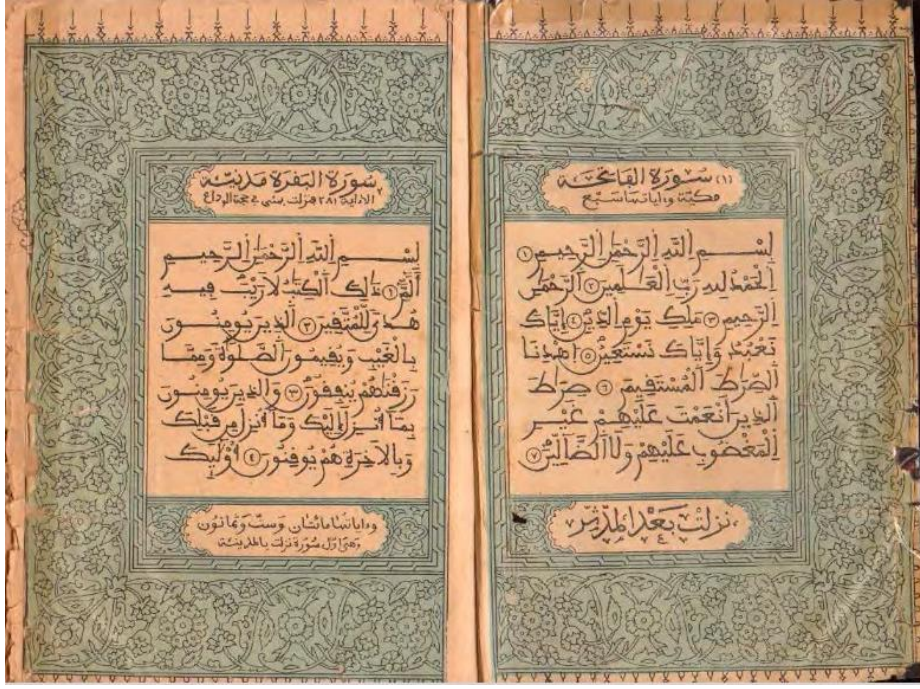 (١) سورة الفاتحة
مكية وءاياتها سبع
بِسْمِ اللَّهِ الرَّحْمَٰنِ الرَّحِيمِ ١
الْحَمْدُ لِلهِ رَبِّ الْعَٰلَمِينَ ٢ الرَّحْمَٰنِ
الرَّحِيمِ ٣ مَلِكِ يَوْمِ الدِّينِ ٤ إِيَّاكَ
نَعْبُدُ وَإِيَّاكَ نَسْتَعِينُ ٥ اهْدِنَا
الصِّرَٰطَ الْمُسْتَفِيمَ ٦ صِرَٰطَ
الَّذِينَ أَنْعَمْتَ عَلَيْهِمْ غَيْرِ
الْمَغْضُوبِ عَلَيْهِمْ وَلَا الضَّالِّينَ ٧
نزلت بعد المدثر
٢ سورة البفرة مدنية
الا ءاية ٢٨١ فنزلت بمنى في حجة الوداع
بِسْمِ اللَّهِ الرَّحْمَٰنِ الرَّحِيمِ
أَلَمِّ ١ ذَٰلِكَ الْكِتَٰبُ لَا رَيْبَ فِيهِ
هُدىً لِّلْمُتَّفِينَ ٢ الَّذِينَ يُومِنُونَ
بِالْغَيْبِ وَيُفِيمُونَ الصَّلَوٰةَ وَمِمَّا
رَزَفْنَٰهُمْ يُنفِفُونَ ٣ وَالَّذِينَ يُومِنُونَ
بِمَا أُنزِلَ إِلَيْكَ وَمَا أُنزِلَ مِن فَبْلِكَ
وَبِالَاخِرَةِ هُمْ يُوفِنُونَ ٤ أُوْلَٰئِكَ
وءاياتها مائتان وست وثمانون
وهي اول سورة نزلت بالمدينة